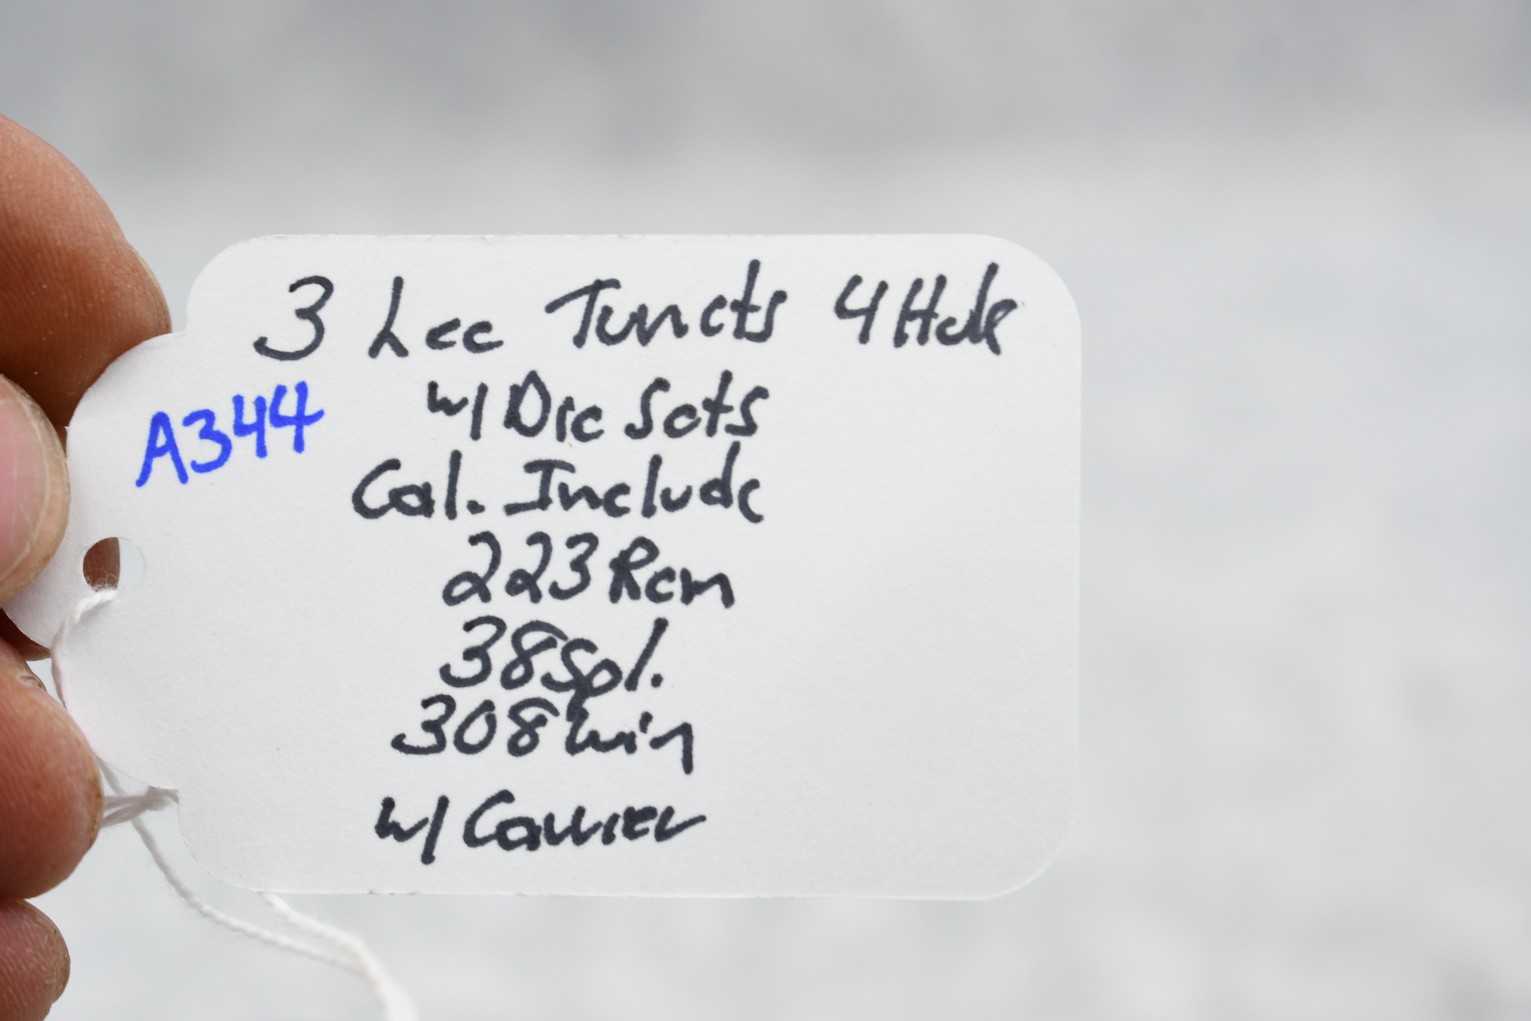 3 Lee Turrets 4 Hole
A344
w/ Die Sets
Cal. Include
223 Rem
38 Spl.
308 Win
w/ Carrier